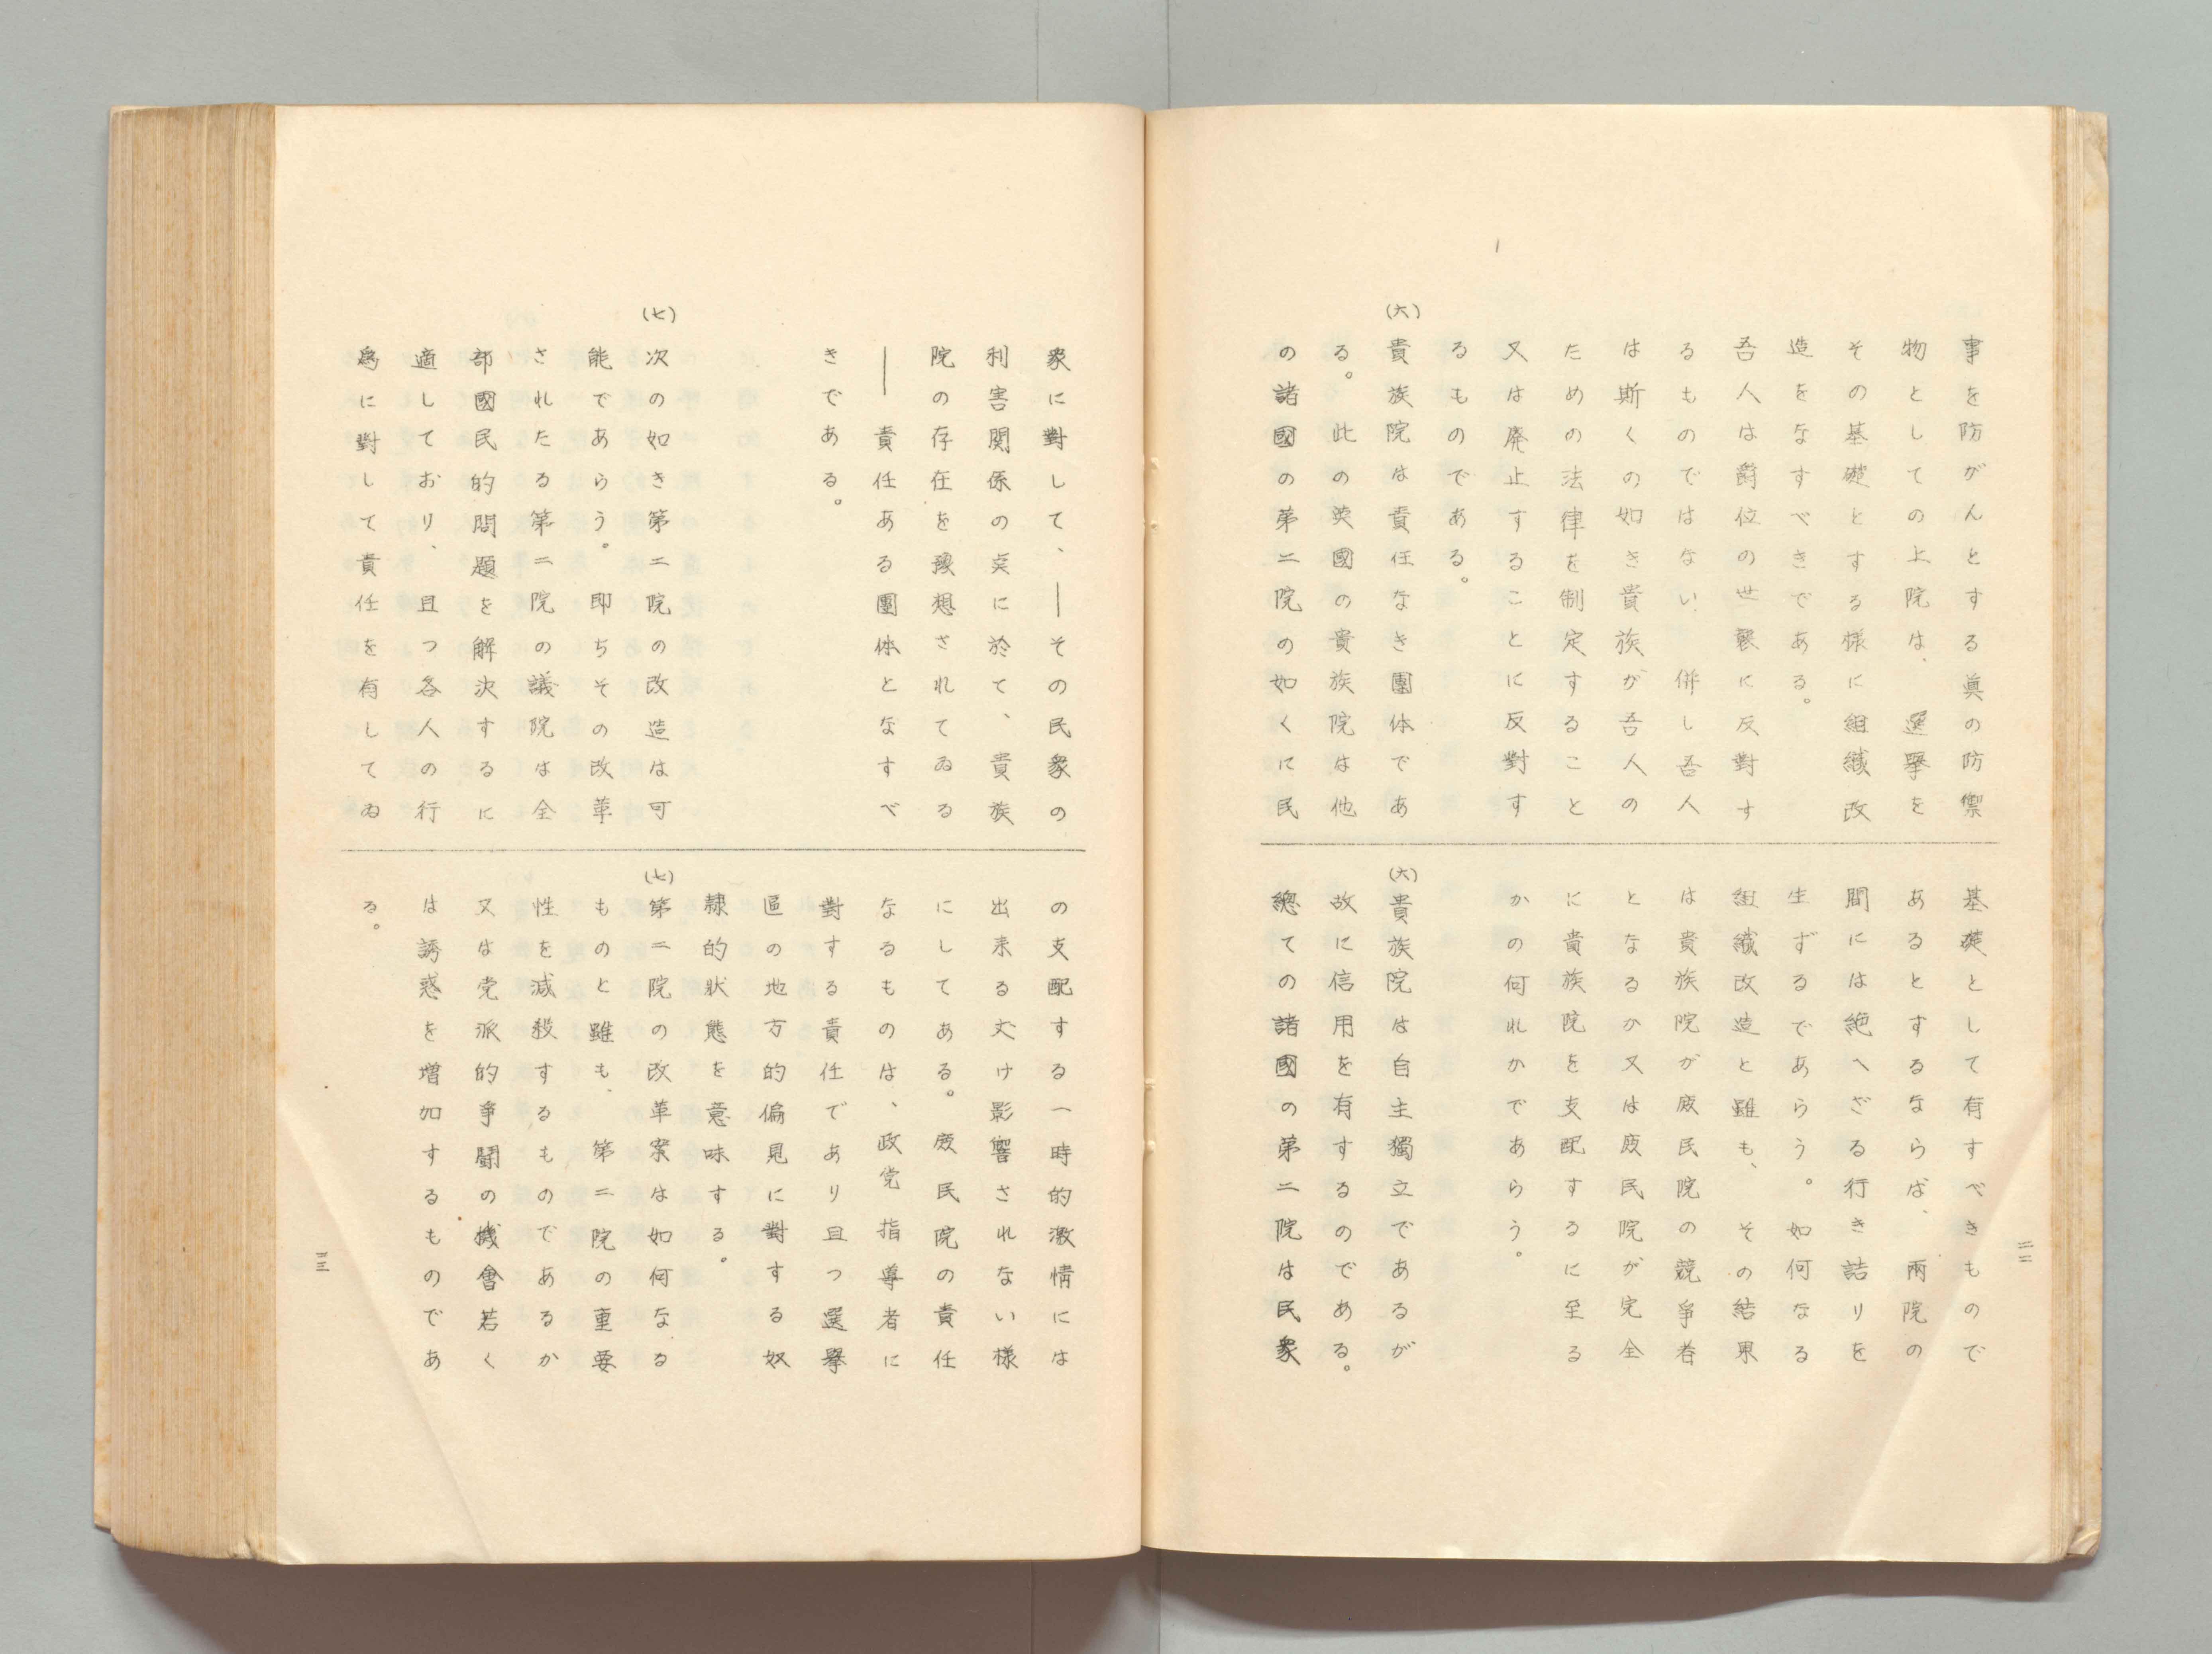 事を防がんとする眞の防禦
物としての上院は、選擧を
その基礎とする様に組織改
造をなすべきである。
吾人は爵位の世襲に反對す
るものではない、併し吾人
は斯くの如き貴族が吾人の
ための法律を制定すること
又は廃止することに反對す
るものである。
(六)
貴族院は責任なき團体であ
る。此の英國の貴族院は他
の諸國の第二院の如くに民
基礎として有すべきもので
あるとするならば、兩院の
間には絶へざる行き詰りを
生ずるであらう。如何なる
組織改造と雖も、その結果
は貴族院が庶民院の競爭者
となるか又は庶民院が完全
に貴族院を支配するに至る
かの何れかであらう。
(六)
貴族院は自主獨立であるが
故に信用を有するのである。
總ての諸國の第二院は民衆
二二
衆に對して、―その民衆の
利害関係の点に於て、貴族
院の存在を豫想されてゐる
―責任ある團体となすべ
きである。
(七)
次の如き第二院の改造は可
能であらう。即ちその改革
されたる第二院の議院は全
部國民的問題を解決するに
適しており、且つ各人の行
爲に對して責任を有してゐ
の支配する一時的激情には
出来る丈け影響されない様
にしてある。庶民院の責任
なるものは、政党指導者に
對する責任であり且つ選擧
區の地方的偏見に對する奴
隷的状態を意味する。
(七)
第二院の改革案は如何なる
ものと雖も、第二院の重要
性を減殺するものであるか
又は党派的爭鬪の機會若く
は誘惑を増加するものであ
る。
二三